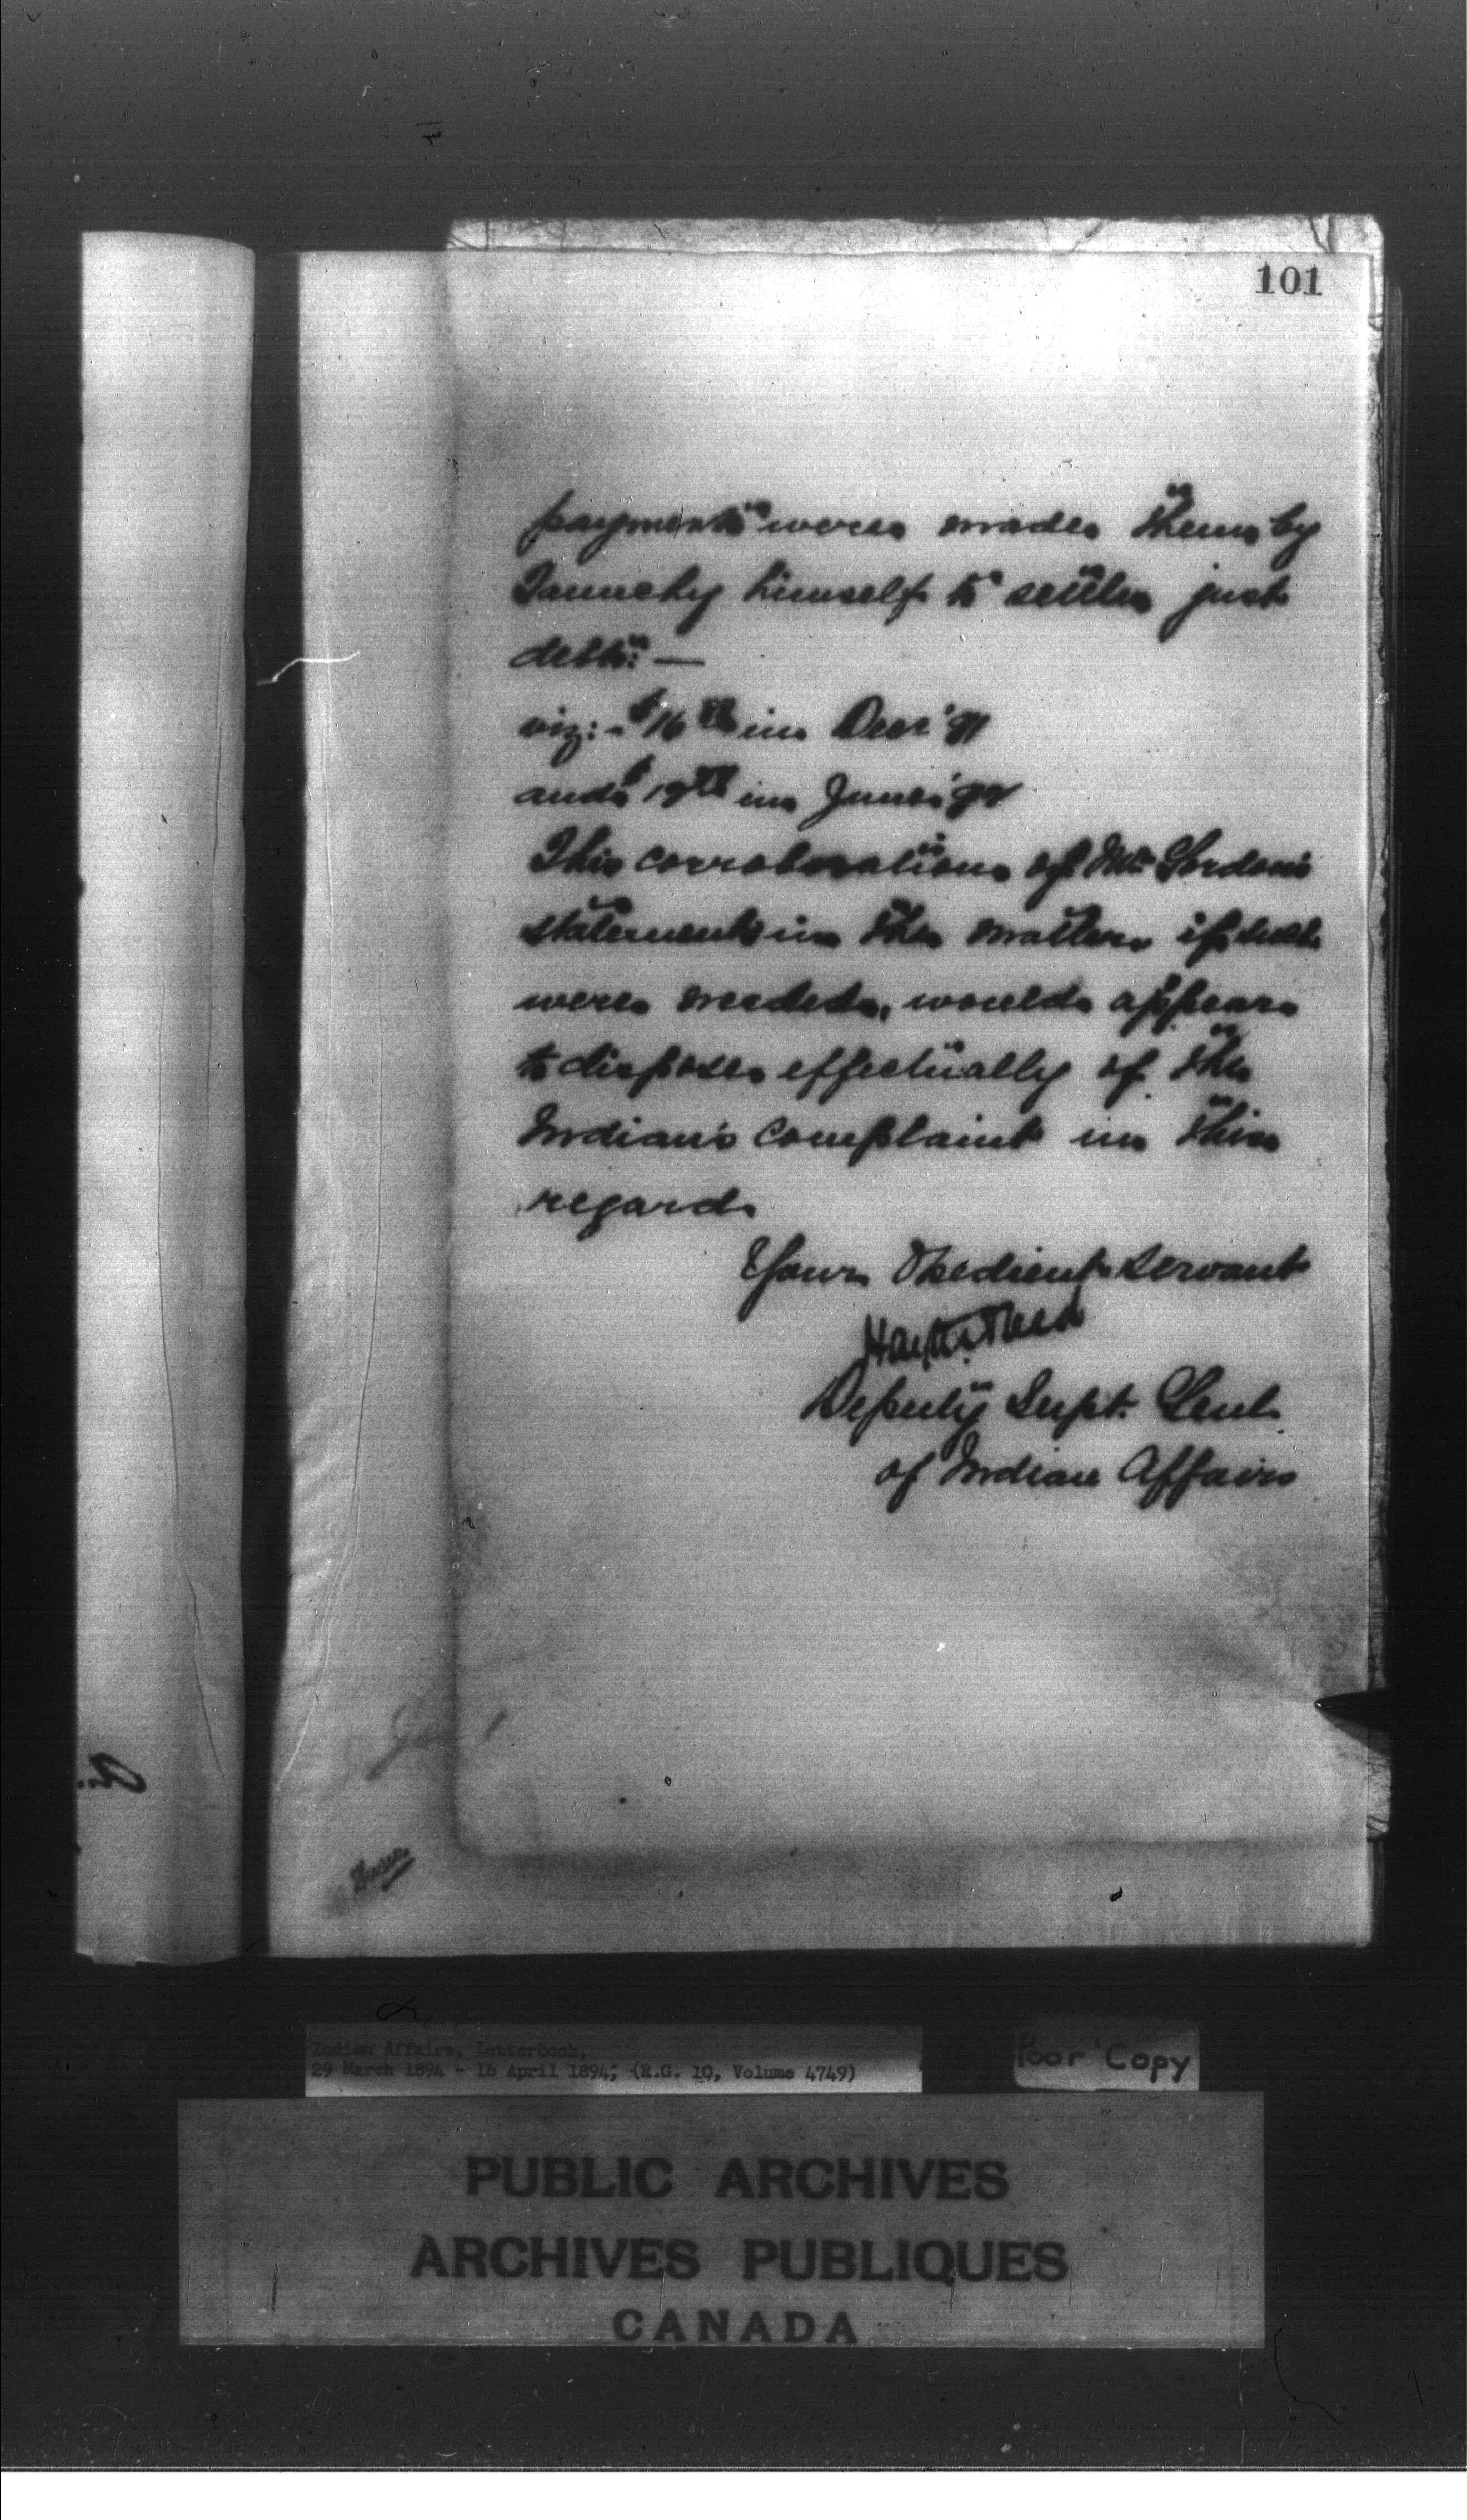 101
payments were made them by
himself to settle just
debts: —
viz: - $16 in Decr '91
and $ in June
This corroboration of Mr Gordon's
statement in the matter if such
were needed, would appear
to dispose effectually of the
Indian's complaint in this
regard.
Your Obedient Servant
Hayter Reed
Deputy Supt. Genl.
of Indian Affairs
Indian Affairs, Letterbook,
29 March 1894 - 16 April 1894; (R.G. 10, Volume 4749)
Poor Copy
PUBLIC ARCHIVES
ARCHIVES PUBLIQUES
CANADA